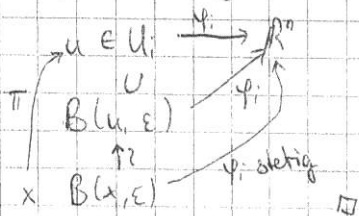 u ∈ U_i → ℝⁿ
φ_i
π
∪
B(u, ε)
φ_i
↑≀
x B(x, ε) φ_i stetig
□